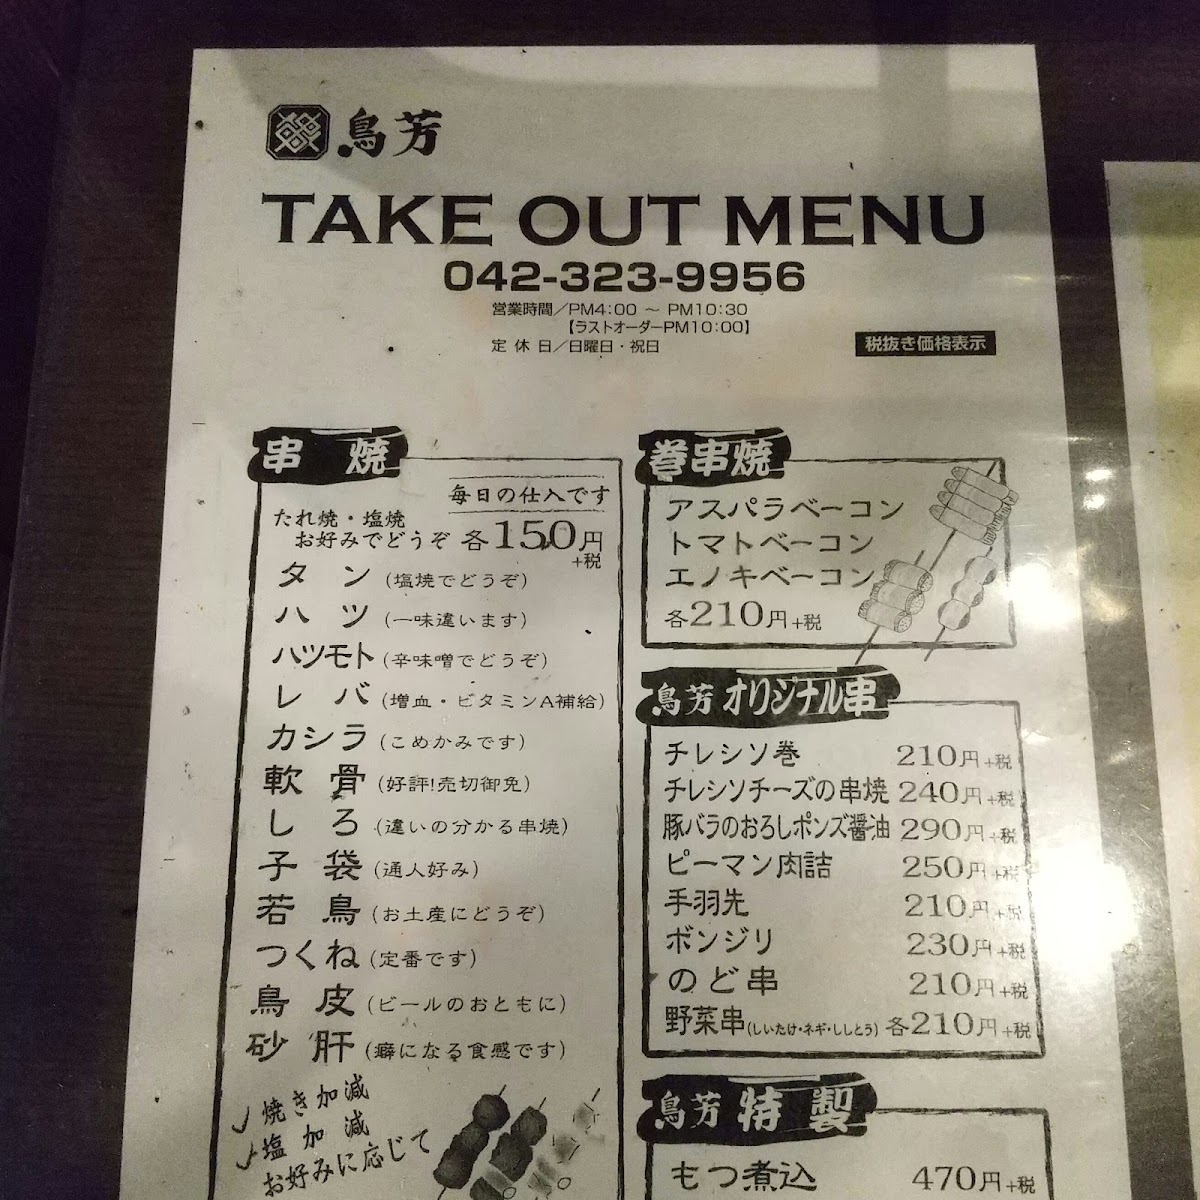 鳥芳
TAKE OUT MENU
042-323-9956
営業時間／PM4:00 ～ PM10:30
【ラストオーダーPM10:00】
定休日／日曜日・祝日
税抜き価格表示
串焼
毎日の仕入です
たれ焼・塩焼
お好みでどうぞ 各150円
+税
タン (塩焼でどうぞ)
ハツ (一味違います)
ハツモト (辛味噌でどうぞ)
レバ (増血・ビタミンA補給)
カシラ (こめかみです)
軟骨 (好評!売切御免)
しろ (違いの分かる串焼)
子袋 (通人好み)
若鳥 (お土産にどうぞ)
つくね (定番です)
鳥皮 (ビールのおともに)
砂肝 (癖になる食感です)
焼き加減
塩加減
お好みに応じて
巻串焼
アスパラベーコン
トマトベーコン
エノキベーコン
各210円+税
鳥芳オリジナル串
チレシソ巻 210円+税
チレシソチーズの串焼 240円+税
豚バラのおろしポンズ醤油 290円+税
ピーマン肉詰 250円+税
手羽先 210円+税
ボンジリ 230円+税
のど串 210円+税
野菜串(しいたけ・ネギ・ししとう) 各210円+税
鳥芳特製
もつ煮込 470円+税